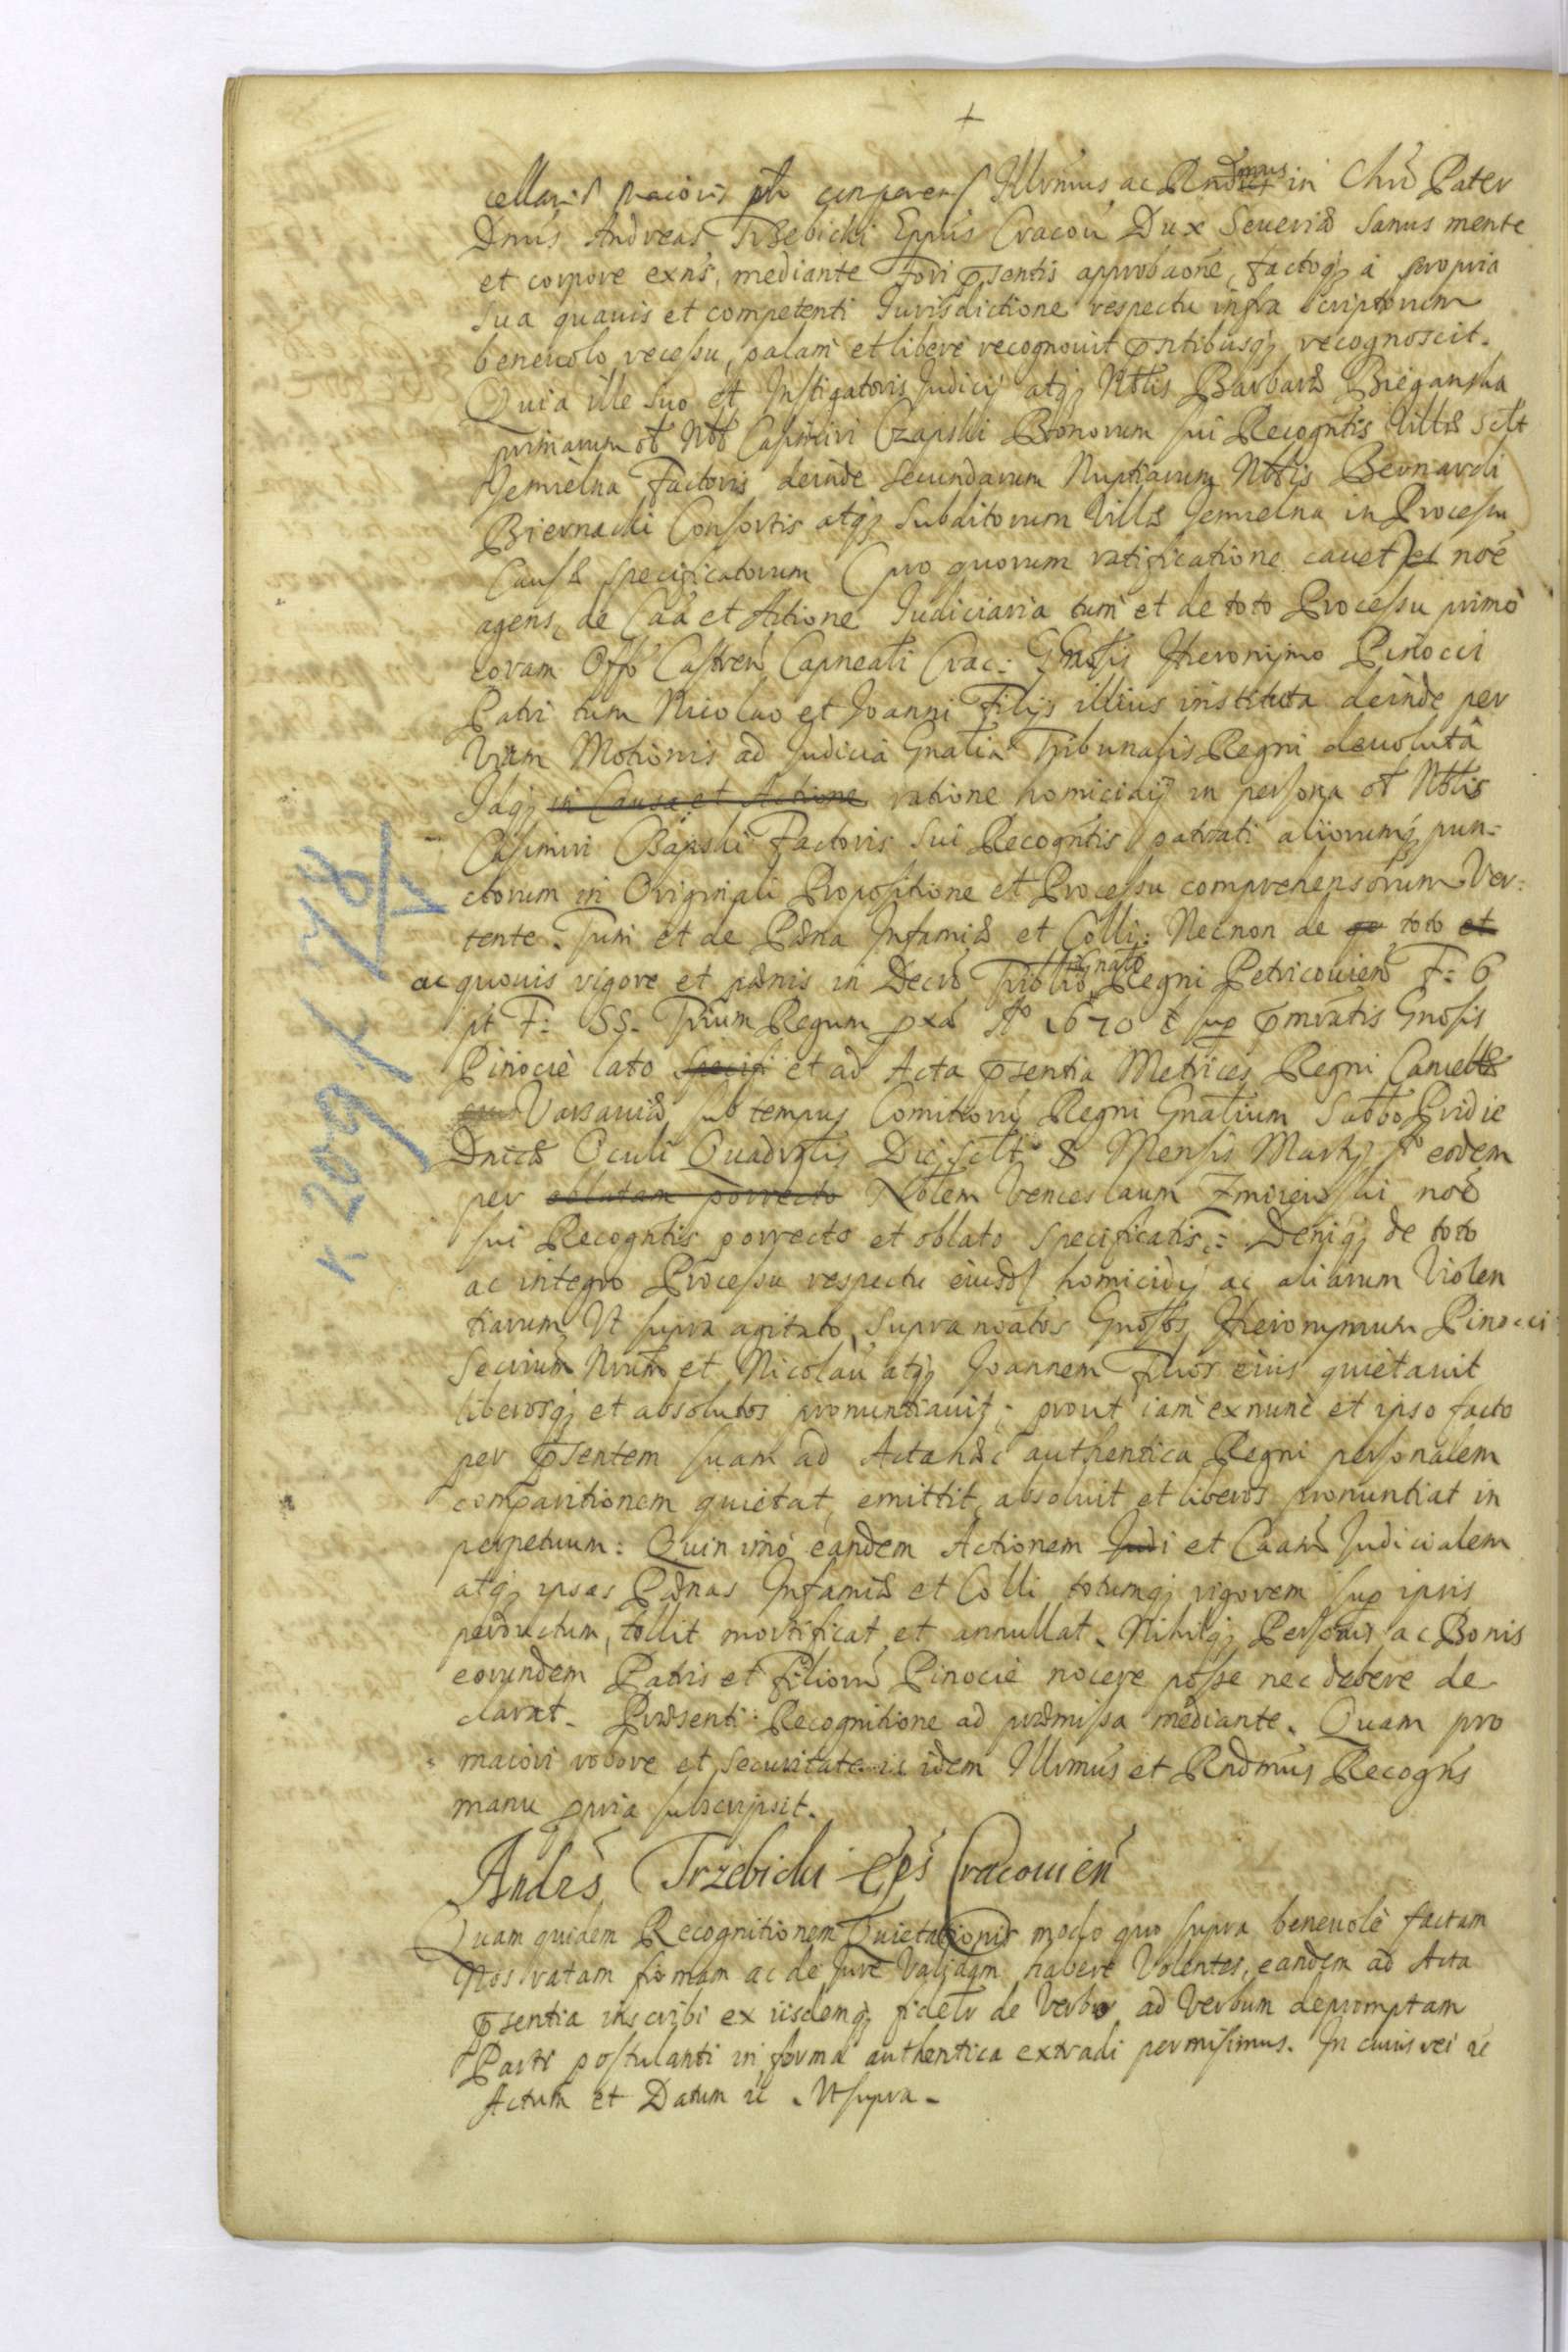 +
cellariæ maioris comparens Illrmus ac Rndmus in Chro Pater
Dnus Andreas Trzebicki Eppus Cracou Dux Seueriæ sanus mente
et corpore exns, mediante fori pntis approbaone, factoq; a propria
sua quauis et competenti Jurisdictione respectu infra scriptorum
beneuolo recessu, palam et libere recognouit pntibusq; recognoscit.
Quia ille suo et Instigatoris Judicij atq; Nblis Barbaræ Bieganska
primarum ol Nbl Casimiri Czapski Bonorum sui Recogntis Villæ sclt
Jemielna Factoris deinde secundarum Nuptiarum Nblis Bernardi
Biernacki Consortis atq; subditorum Villæ Jemielna in Processu
Causæ specificatorum (pro quorum ratificatione cauet) et noe
agens, de Caa et Actione Judiciaria tum et de toto Processu primo
coram Offo Castren Capneali Crac: Gnosis Hieronymo Pinocci
Patri tum Nicolao et Joanni Filijs illius instituta deinde per
Viam Motionis ad Judicia Gnalia Tribunalis Regni deuoluta
Idq; in Causa et Actione ratione homicidij in persona ol Nblis
Casimiri Czapski Factoris sui Recogntis patrati aliorumq; pun=
ctorum in Originali Propositione et Processu comprehensorum Ver=
tente. Tum et de Pæna Infamiæ et Colli: Necnon de toto et
ac quouis vigore et pænis in Decro Triblis Regni Petricouien F: 6
pt F: SS. Trium Regum pxa Ao 1670 sup pmratis Gnosis
Pinocie lato specifi et ad Acta pntia Metrices Regni Cancellæ
Varsauiæ sub tempus Comitioru Regni Gnalium Sabbo Pridie
Dnicæ Oculi Quadrglis Die sclt 8 Mensis Martij eodem
per oblatam porrecto Nblem Venceslaum Zmijewski noe
sui Recogntis porrecto et oblato specificatis: Deniq; de toto
ac integro Processu respectu eiusd homicidij ac aliarum Violen
tiarum Vt supra agitato, supra noatos Gnosos Hieronymum Pinocci
Secrium Nrum et Nicolau atq; Joannem Filios eius quietauit
liberosq; et absolutos pronuntiauit; prout iam exnunc et ipso facto
per pntem suam ad Acta hæc authentica Regni personalem
comparitionem quietat, emittit, absoluit et liberos pronuntiat in
perpetuum: Quin imo eandem Actionem Judi et Caam Judicialem
atq; ipsas Pænas Infamiæ et Colli totumq; vigorem sup ipsis
perductum, tollit mortificat et annullat. Nihilq; Personis ac Bonis
eorundem Patris et Filioru Pinocie nocere posse nec debere de
clarat. Præsenti Recognitione ad præmissa mediante. Quam pro
maiori robore et securitate idem Illrmus et Rndmus Recogns
manu ppria subscripsit.
Andrs Trzebicki Eps Cracouien
Quam quidem Recognitionem Quietationis modo quo supra beneuole factam
Nos ratam firmam ac de Jure Validam habere Volentes, eandem ad Acta
pntia inscribi ex iisdemq; fidelr de Verbo ad Verbum depromptam
Parti postulanti in forma authentica extradi permisimus. In cuius rei
Actum et Datum . Vt supra.
k 209 / 78 V